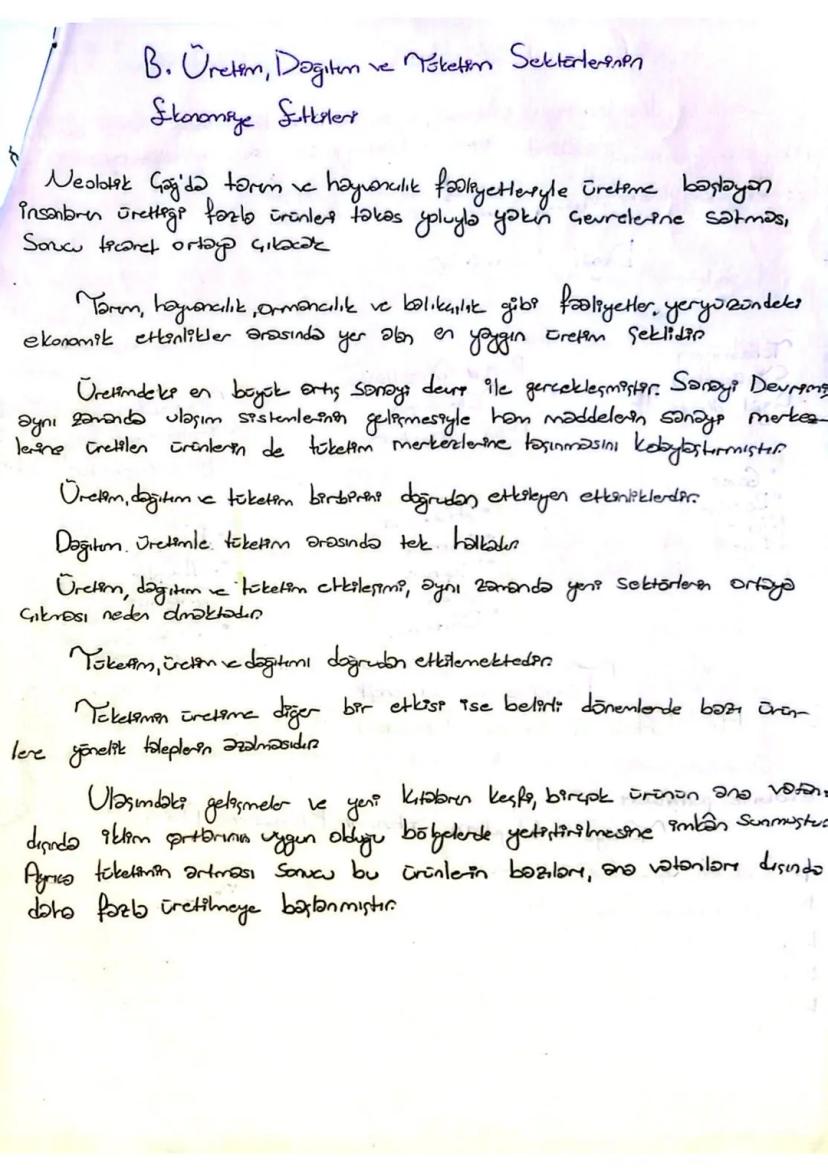 B. Üretim, Dağıtım ve Tüketim Sektörlerinin
Ekonomiye Etkileri
Neolotik Çağ'da tarım ve hayvancılık faaliyetleriyle üretime başlayan
insanların ürettiği fazla ürünleri takas yoluyla yakın çevrelerine satması,
Sonucu ticaret ortaya çıkacak
Tarım, hayvancılık, ormancılık ve balıkçılık gibi faaliyetler, yeryüzündeki
ekonomik etkinlikler arasında yer alan en yaygın üretim şeklidir.
Üretimdeki en büyük artış sanayi devri ile gerçekleşmiştir. Sanayi Devrimi
aynı zamanda ulaşım sistemlerinin gelişmesiyle ham maddelerin sanayi merkez-
lerine üretilen ürünlerin de tüketim merkezlerine taşınmasını kolaylaştırmıştır.
Üretim, dağıtım ve tüketim birbirini doğrudan etkileyen etkinliklerdir.
Dağıtım. Üretimle tüketim arasında tek halkadır
Üretim, dağıtım ve tüketim etkileşimi, aynı zamanda yeni sektörlerin ortaya
çıkması neden olmaktadır.
Tüketim, üretim ve dağıtımı doğrudan etkilemektedir.
Tüketimin üretime diğer bir etkisi ise belirli dönemlerde bazı ürün-
lere yönelik taleplerin azalmasıdır
Ulaşımdaki gelişmeler ve yeni kıtaların keşfi, birçok ürünün ana vatanı
dışında iklim şartlarının uygun olduğu bölgelerde yetiştirilmesine imkân sunmuştur.
Ayrıca tüketimin artması sonucu bu ürünlerin bazıları, ana vatanları dışında
daha fazla üretilmeye başlanmıştır.